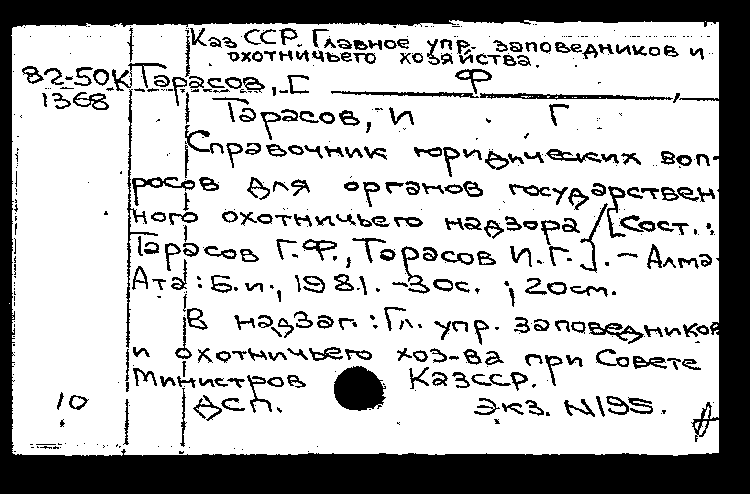 Каз ССР. Главное упр. заповедников и
охотничьего хозяйства.
82-50К Тарасов, Г Ф
1368
Тарасов, И Г
Справочник юридических воп-
росов для органов государствен
ного охотничьего надзора / [Сост.:
Тарасов Г.Ф., Тарасов И.Г.]. - Алма-
Ата: Б.и., 1981. - 30с. ; 20см.
В надзаг.: Гл. упр. заповедников
и охотничьего хоз-ва при Совете
Министров КазССР.
10 ДСП. Экз. N195.